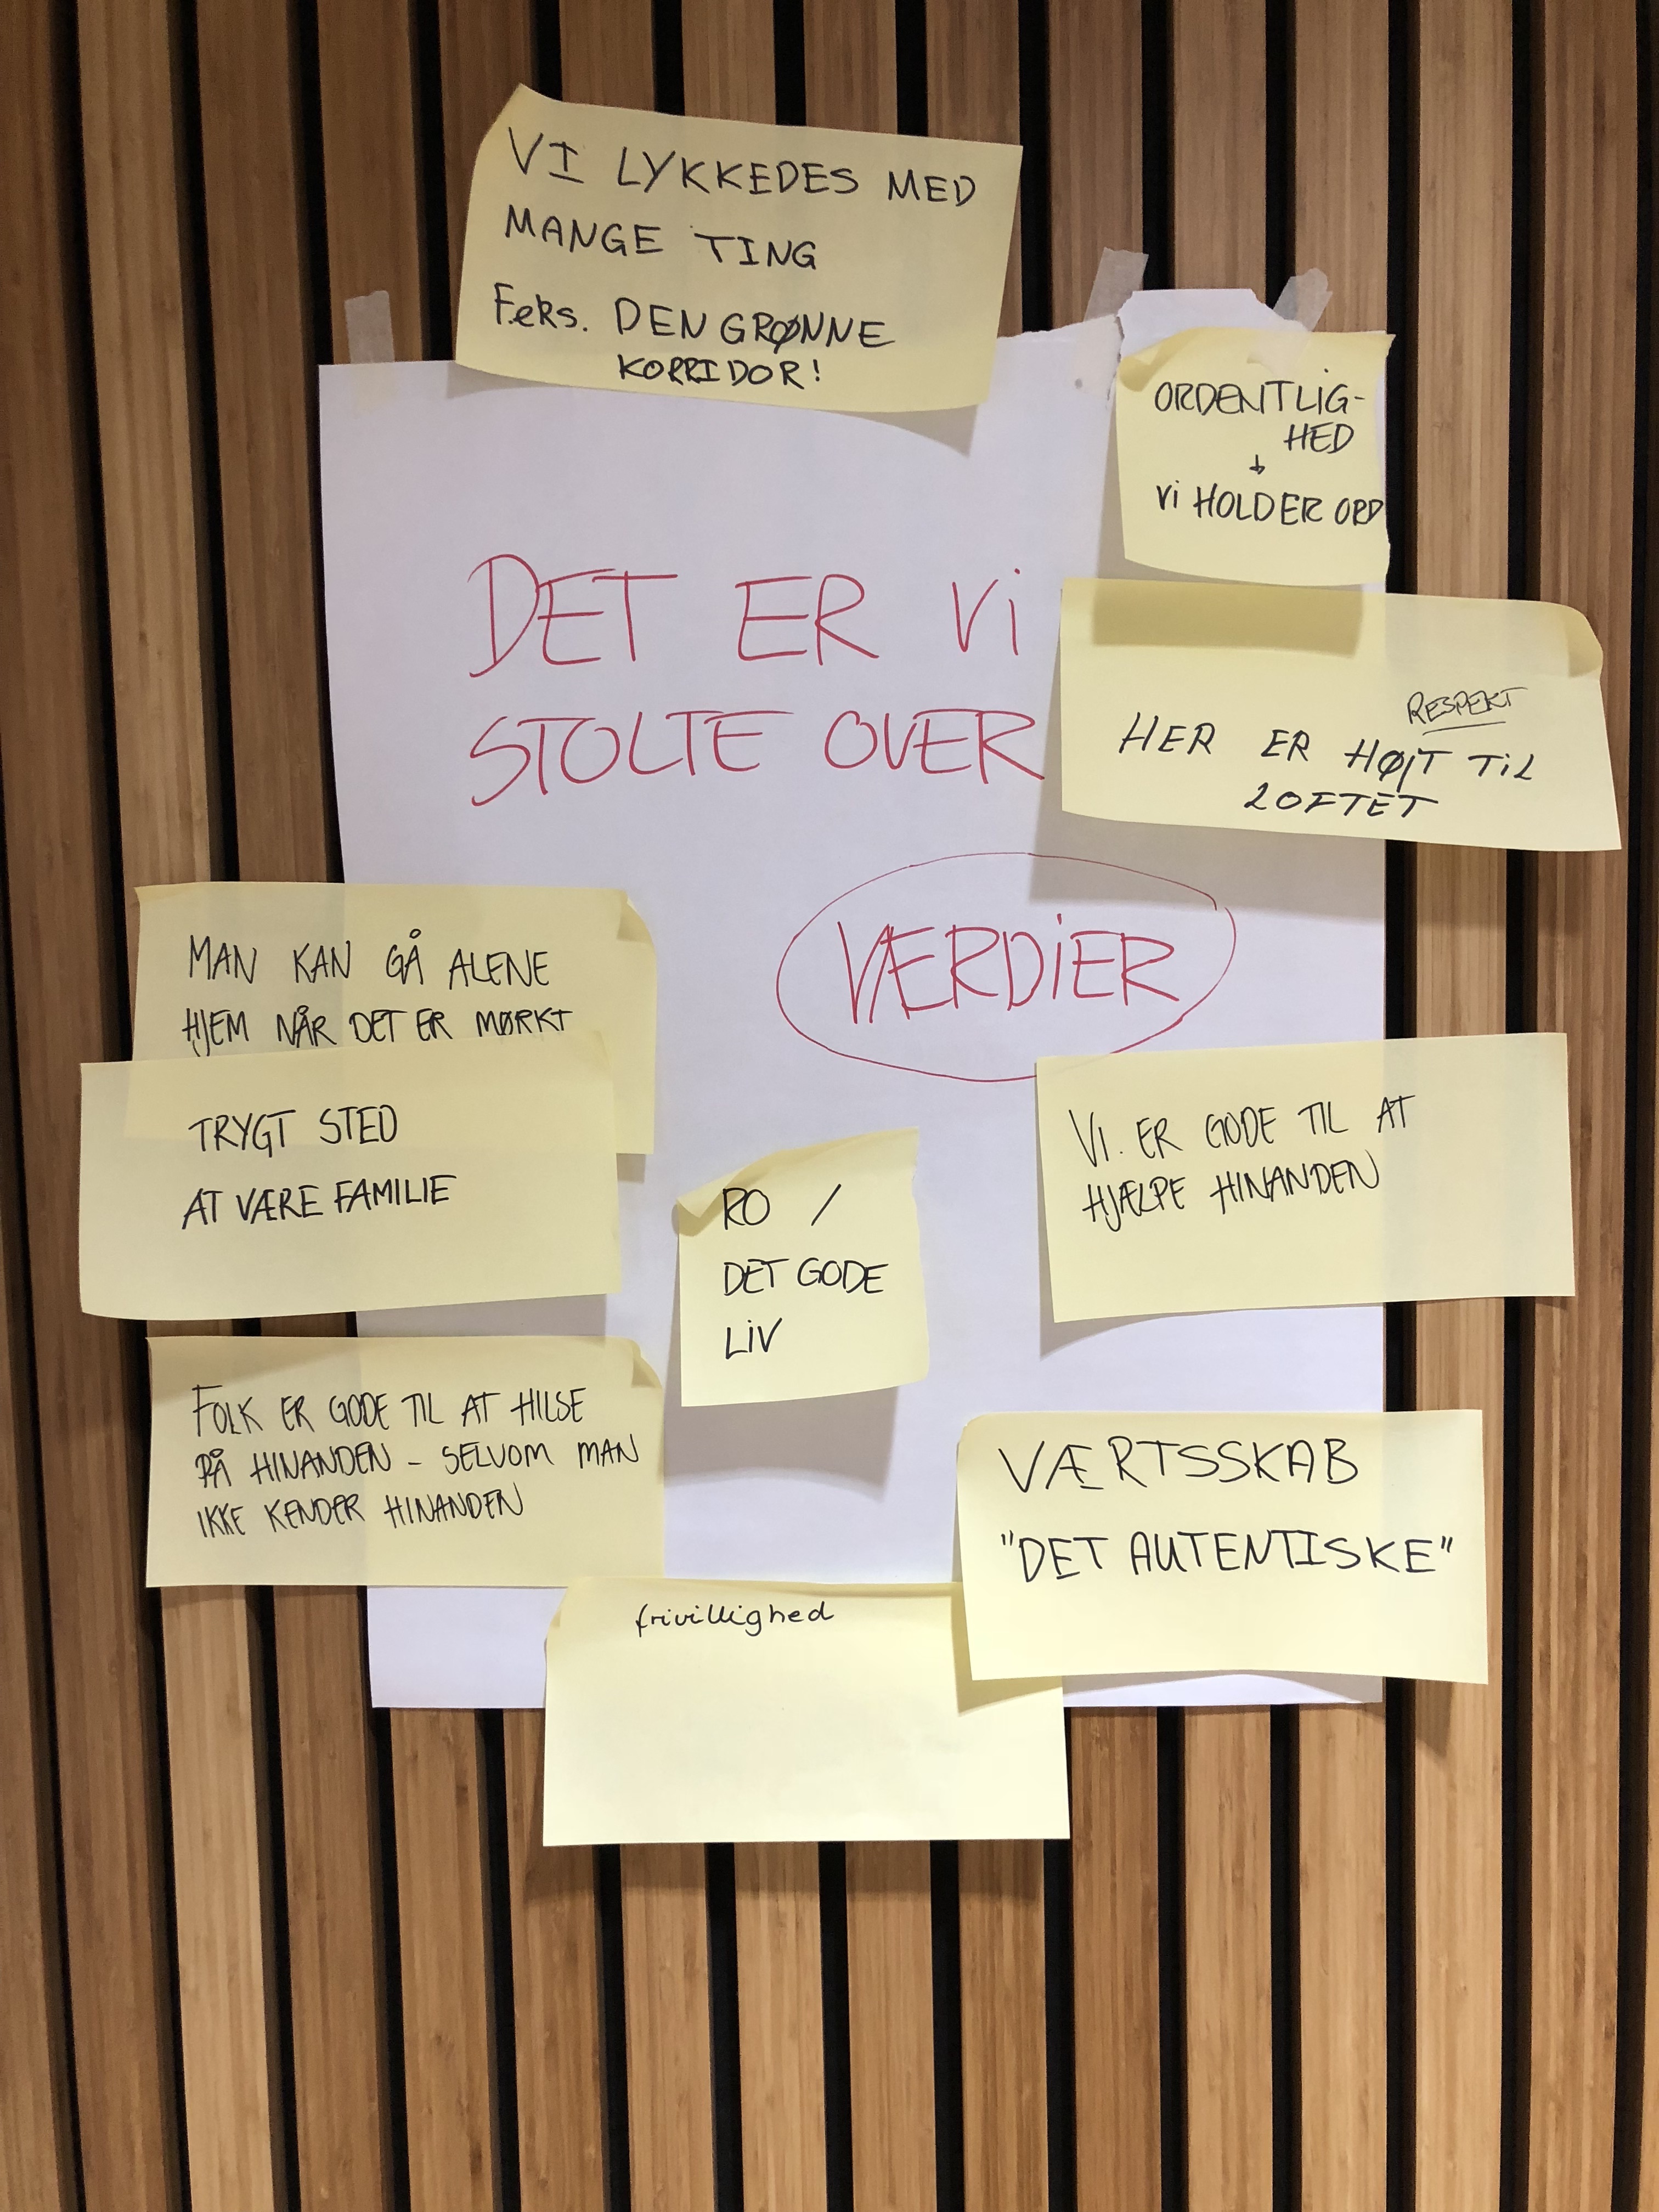 VI LYKKEDES MED
MANGE TING
F.eks. DEN GRØNNE
KORRIDOR!
ORDENTLIG-
HED
↓
Vi HOLDER ORD
DET ER Vi
STOLTE OVER
RESPEKT
HER ER HØJT TiL
LOFTET
VÆRDiER
MAN KAN GÅ ALENE
HJEM NÅR DET ER MØRKT
TRYGT STED
AT VÆRE FAMILIE
RO /
DET GODE
LiV
Vi. ER GODE TIL AT
HJÆLPE HINANDEN
FOLK ER GODE TIL AT HILSE
PÅ HINANDEN - SELVOM MAN
IKKE KENDER HINANDEN
VÆRTSSKAB
"DET AUTENTISKE"
frivillighed